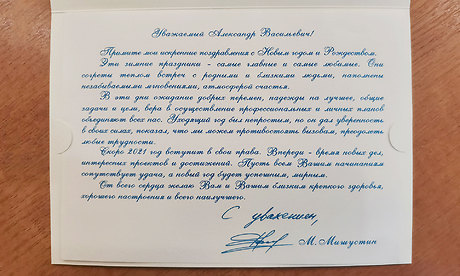 Уважаемый Александр Васильевич!
Примите мои искренние поздравления с Новым годом и Рождеством.
Эти зимние праздники - самые главные и самые любимые. Они
согреты теплом встреч с родными и близкими людьми, наполнены
незабываемыми мгновениями, атмосферой счастья.
В эти дни ожидание добрых перемен, надежды на лучшее, общие
задачи и цели, вера в осуществление профессиональных и личных планов
объединяют всех нас. Уходящий год был непростым, но он дал уверенность
в своих силах, показал, что мы можем противостоять вызовам, преодолеть
любые трудности.
Скоро 2021 год вступит в свои права. Впереди - время новых дел,
интересных проектов и достижений. Пусть всем Вашим начинаниям
сопутствует удача, а новый год будет успешным, мирным.
От всего сердца желаю Вам и Вашим близким крепкого здоровья,
хорошего настроения и всего наилучшего.
С уважением,
М. Мишустин